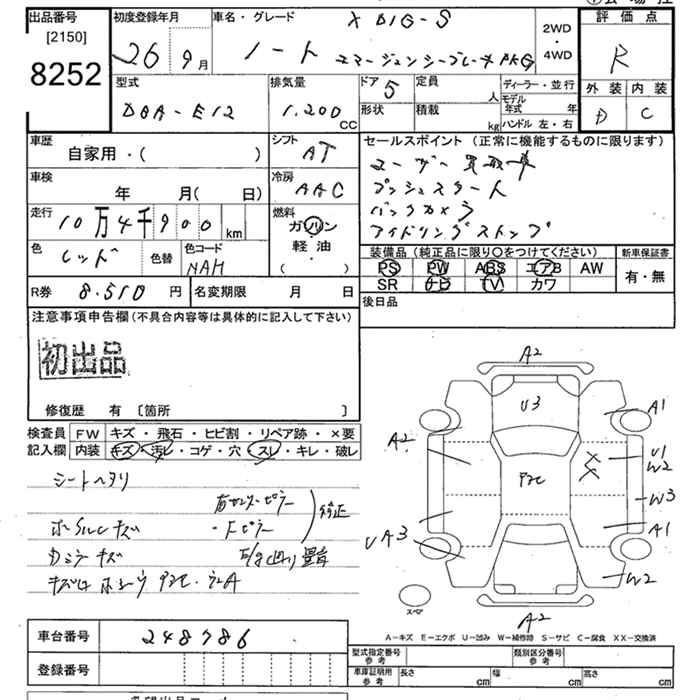 出品番号
[2150]
8252
初度登録年月
26 9月
車名・グレード
X DIG-S
ノート エマージェンシーブレーキPKG
2WD
・
4WD
評価点
R
外装 内装
D C
型式
DBA-E12
排気量
1.200
CC
ドア
5
形状
定員
人
積載
kg
ディーラー・並行
モデル年式 年
ハンドル 左・右
車歴
自家用・( )
シフト
AT
車検
年 月( 日)
冷房
AAC
走行
10万4千900 km
燃料
ガソリン
軽油
( )
色
レッド
色替
色コード
NAH
R券 8.510 円
名変期限 月 日
セールスポイント (正常に機能するものに限ります)
ユーザー買取車
プッシュスタート
バックカメラ
アイドリングストップ
装備品(純正品に限り〇をつけてください)
PS PW ABS エアB AW
SR ナビ TV カワ
新車保証書
有・無
後日品
注意事項申告欄(不具合内容等は具体的に記入して下さい)
初出品
修復歴 有 [箇所 ]
検査員記入欄
FW キズ・飛石・ヒビ割・リペア跡・×要
内装 キズ・汚レ・コゲ・穴・スレ・キレ・破レ
シートヘタリ
右センターピラー
・Fピラー
修正
A2
U3
A1
A2
U1
W2
P2C
W3
UA3
A1
W2
A2
スペア
A-キズ E-エクボ U-凹み W-補修跡 S-サビ C-腐食 XX-交換済
車台番号 248786
登録番号
型式指定番号
参考
類別区分番号
参考
車庫証明用
参考
長さ cm
幅 cm
高さ cm